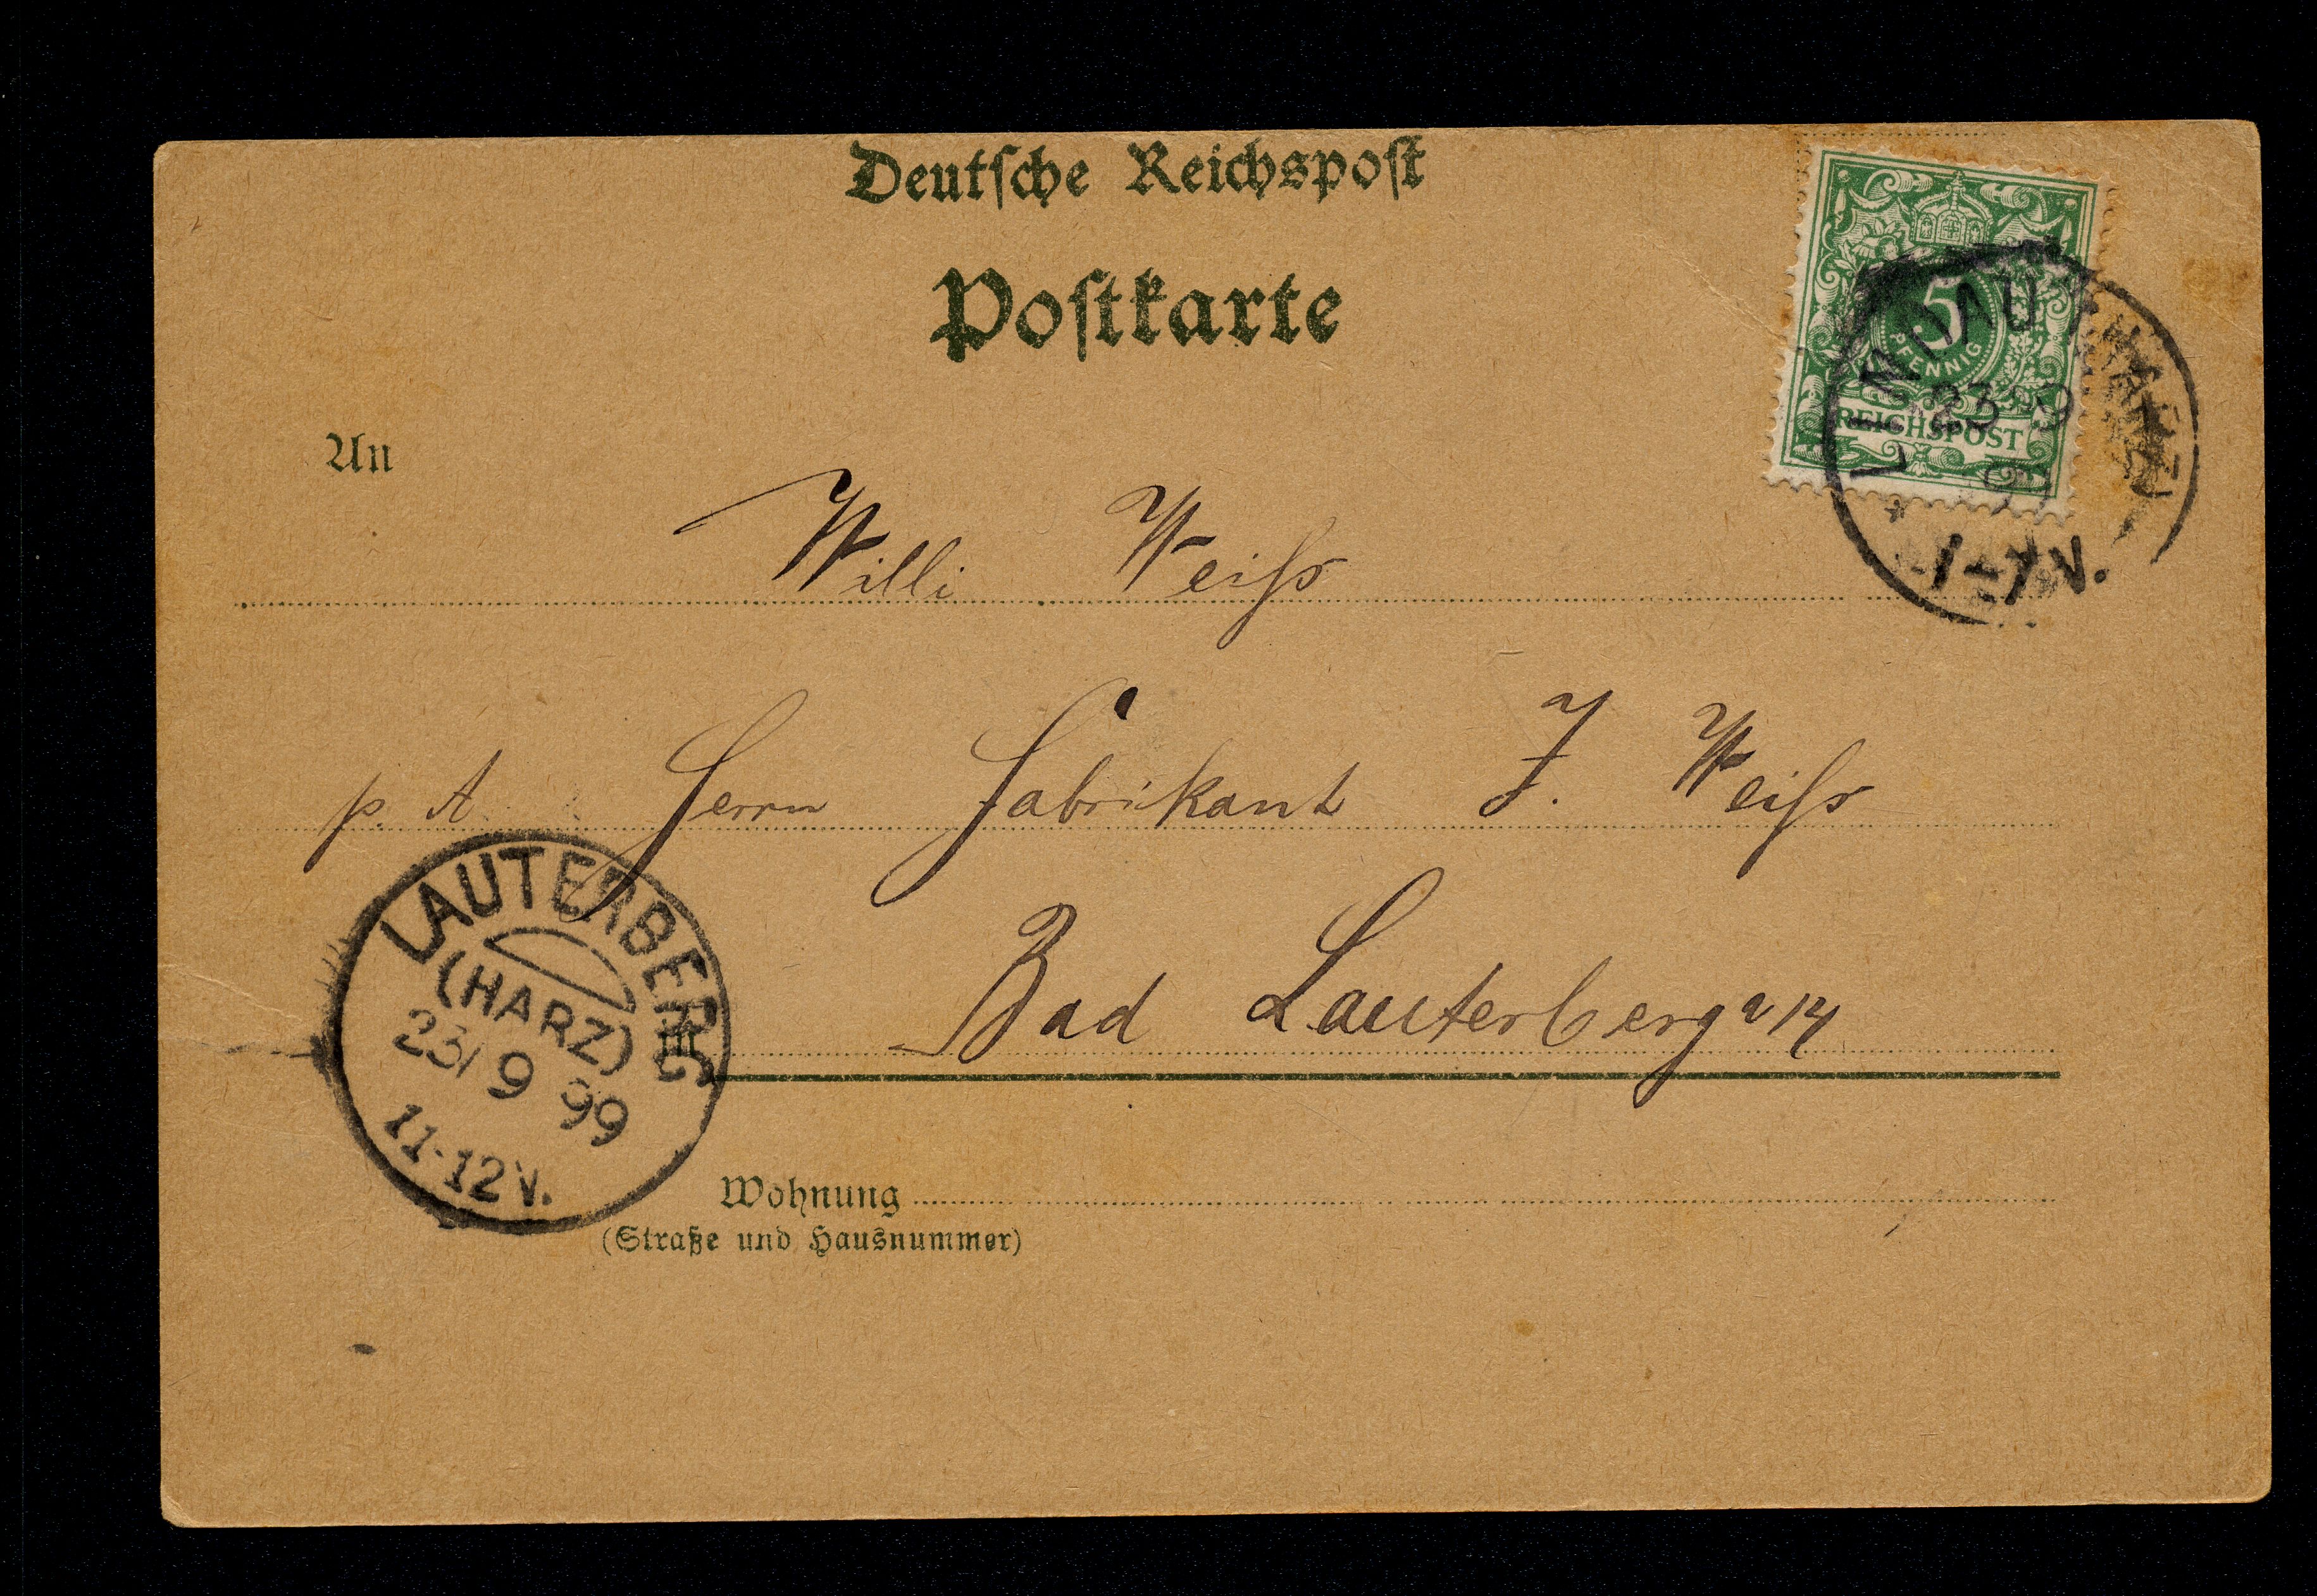 Deutsche Reichspost
Postkarte
5
PFENNIG
REICHSPOST
23 9
1-7 V.
An
Willi Weiß
p. A. Herrn Fabrikant J. Weiß
in Bad Lauterberg a/H
LAUTERBERG
(HARZ)
23/9 99
11-12 V.
Wohnung
(Straße und Hausnummer)